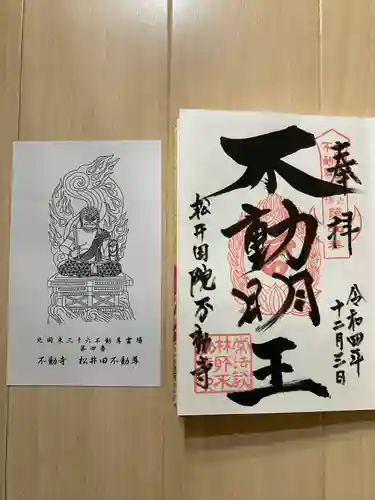 奉拝
令和四年
十二月三日
不動明王
松井田院不動寺
北関東三十六不動尊霊場
第四番
不動寺 松井田不動尊